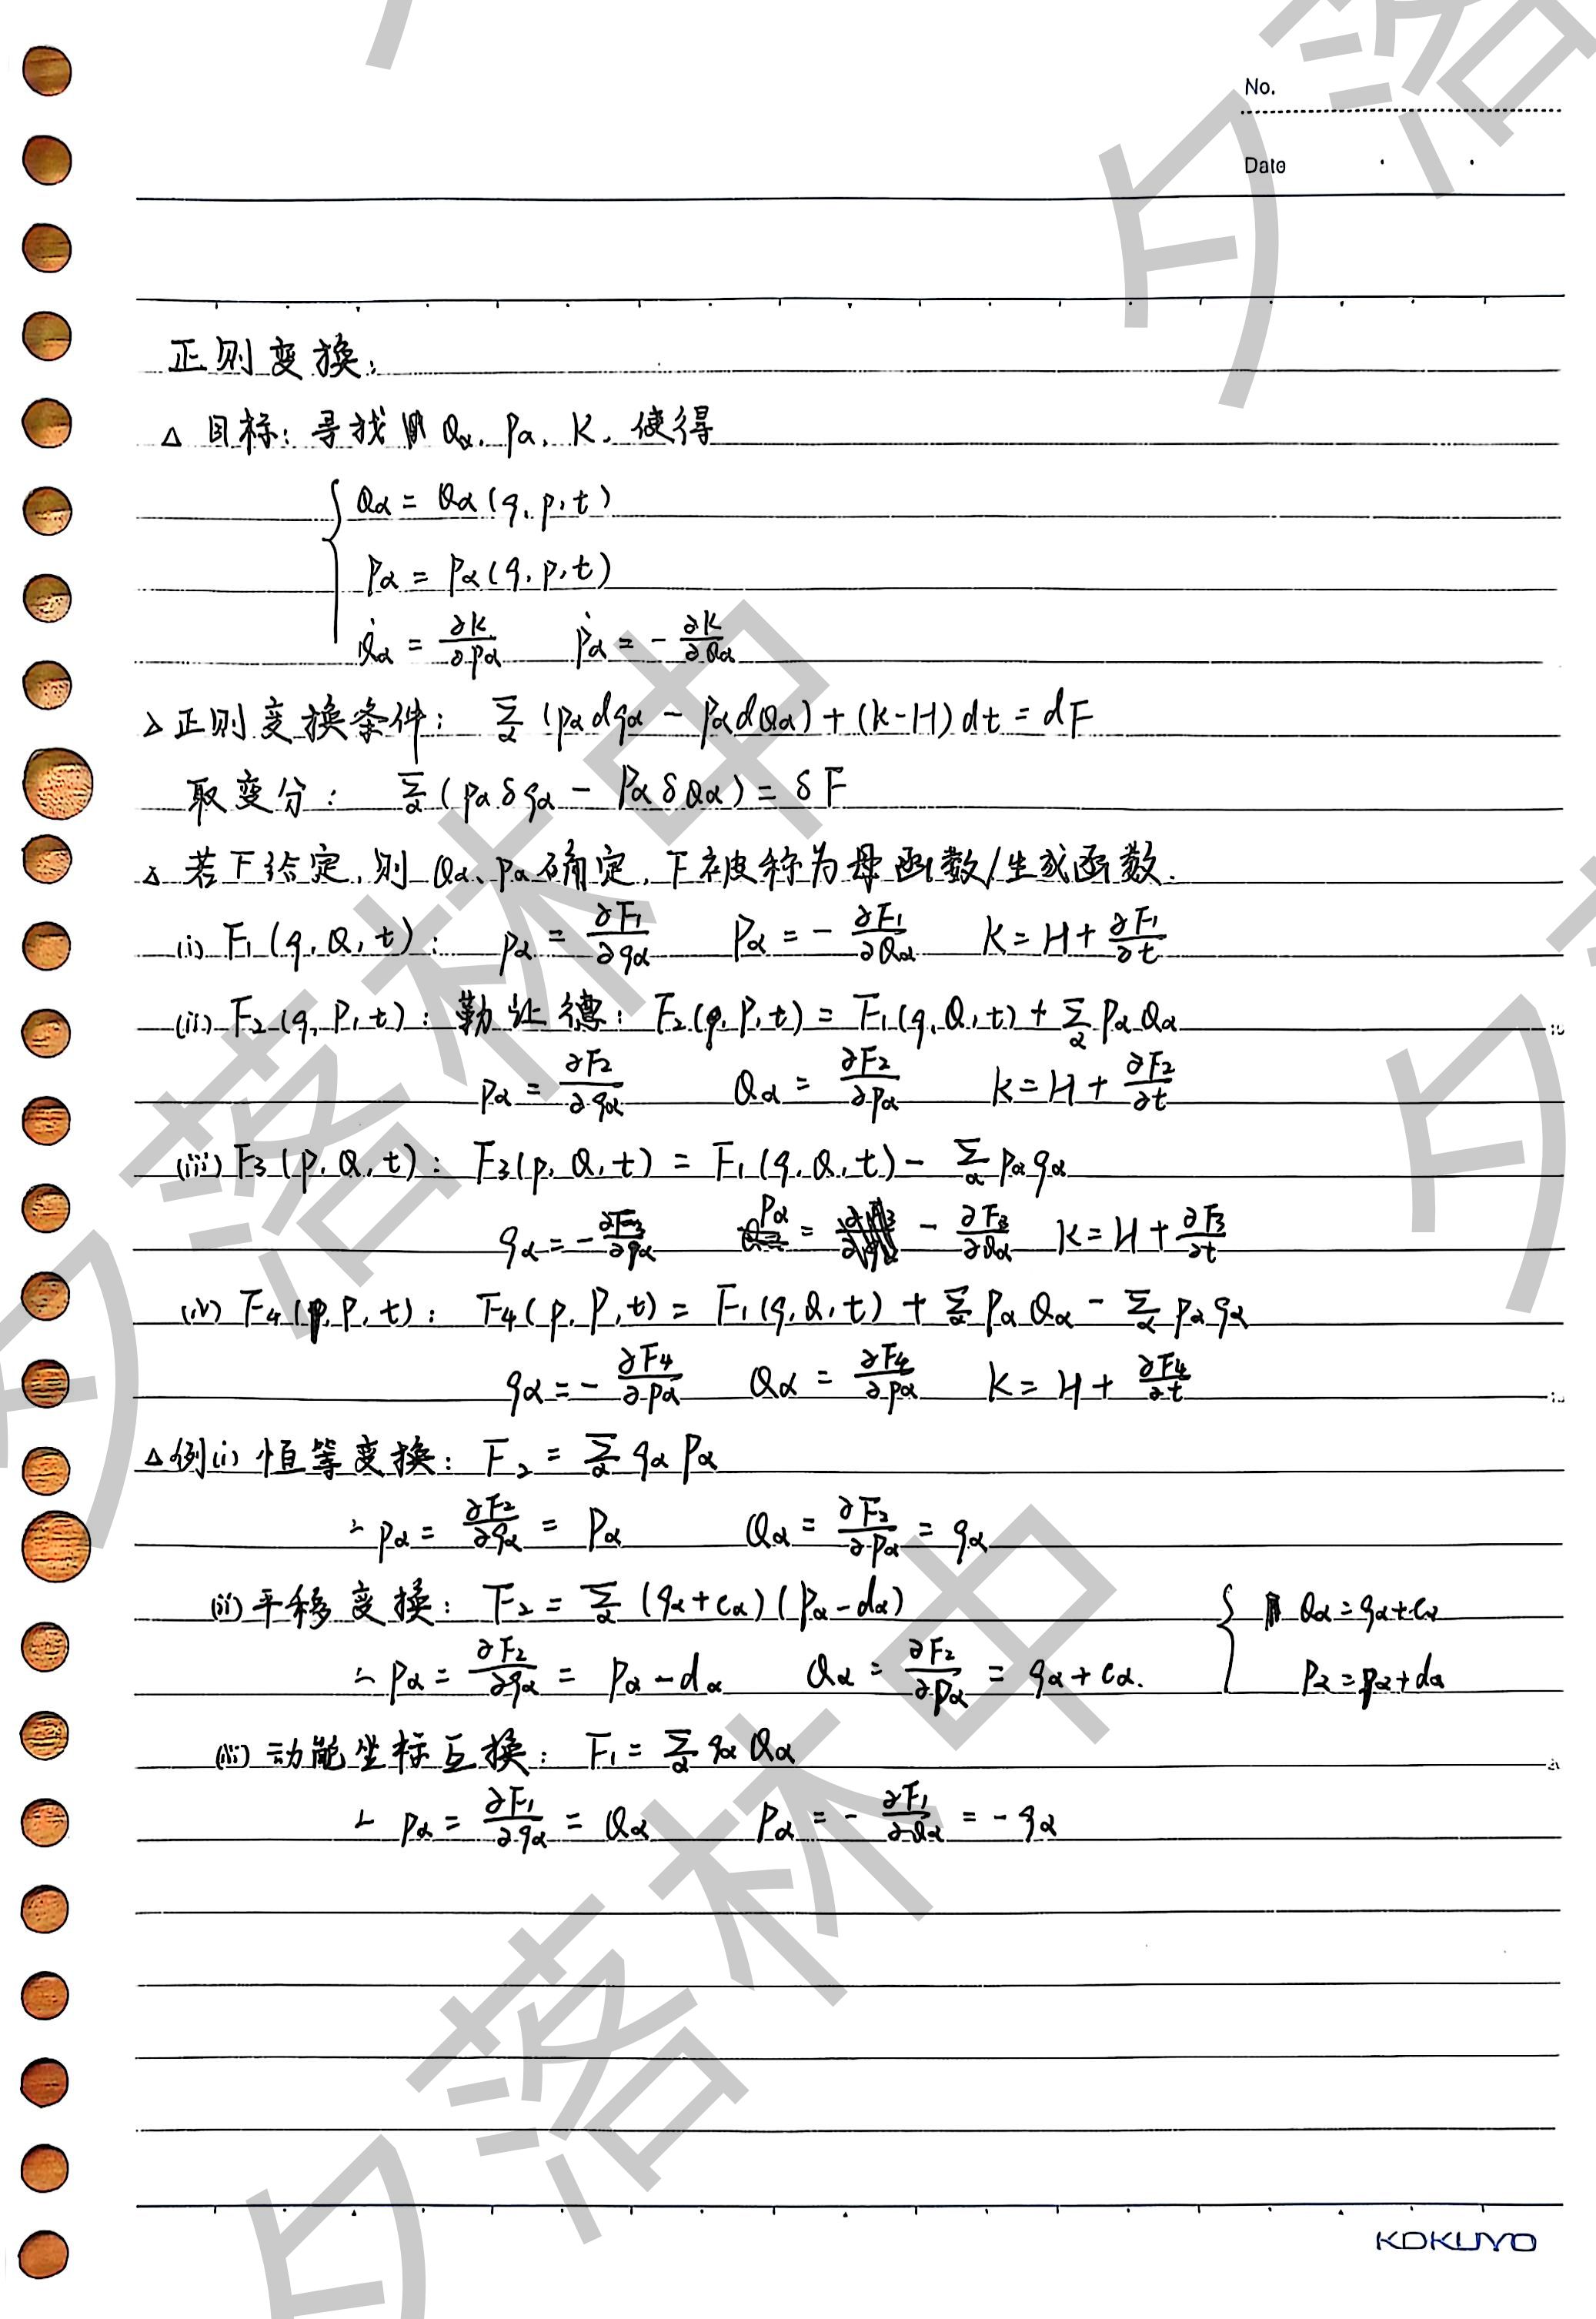 No.
Date
正则变换:
△ 目标: 寻找 Qα, Pα, K, 使得
Qα = Qα(q, p, t)
Pα = Pα(q, p, t)
Q̇α = ∂K/∂Pα  Ṗα = -∂K/∂Qα
△ 正则变换条件: Σα (pα dqα - Pα dQα) + (K-H) dt = dF
取变分: Σα (pα δqα - Pα δQα) = δF
△ 若F给定, 则 Qα、Pα确定, F被称为母函数/生成函数.
(i) F₁(q, Q, t): pα = ∂F₁/∂qα  Pα = -∂F₁/∂Qα  K = H + ∂F₁/∂t
(ii) F₂(q, P, t): 勒让德: F₂(q, P, t) = F₁(q, Q, t) + Σα Pα Qα
pα = ∂F₂/∂qα  Qα = ∂F₂/∂Pα  K = H + ∂F₂/∂t
(iii) F₃(p, Q, t): F₃(p, Q, t) = F₁(q, Q, t) - Σα pα qα
qα = -∂F₃/∂qα  Pα = -∂F₃/∂Qα  K = H + ∂F₃/∂t
(iv) F₄(p, P, t): F₄(p, P, t) = F₁(q, Q, t) + Σα Pα Qα - Σα pα qα
qα = -∂F₄/∂pα  Qα = ∂F₄/∂Pα  K = H + ∂F₄/∂t
△ 例(i) 恒等变换: F₂ = Σα qα Pα
∴ pα = ∂F₂/∂qα = Pα  Qα = ∂F₂/∂Pα = qα
(ii) 平移变换: F₂ = Σα (qα+cα)(Pα-dα)  Qα = qα+cα
∴ pα = ∂F₂/∂qα = Pα - dα  Qα = ∂F₂/∂Pα = qα + cα.  Pα = pα+dα
(iii) 动能坐标互换: F₁ = Σα qα Qα
∴ pα = ∂F₁/∂qα = Qα  Pα = -∂F₁/∂Qα = -qα
KOKUYO
夕落林中
夕落林中